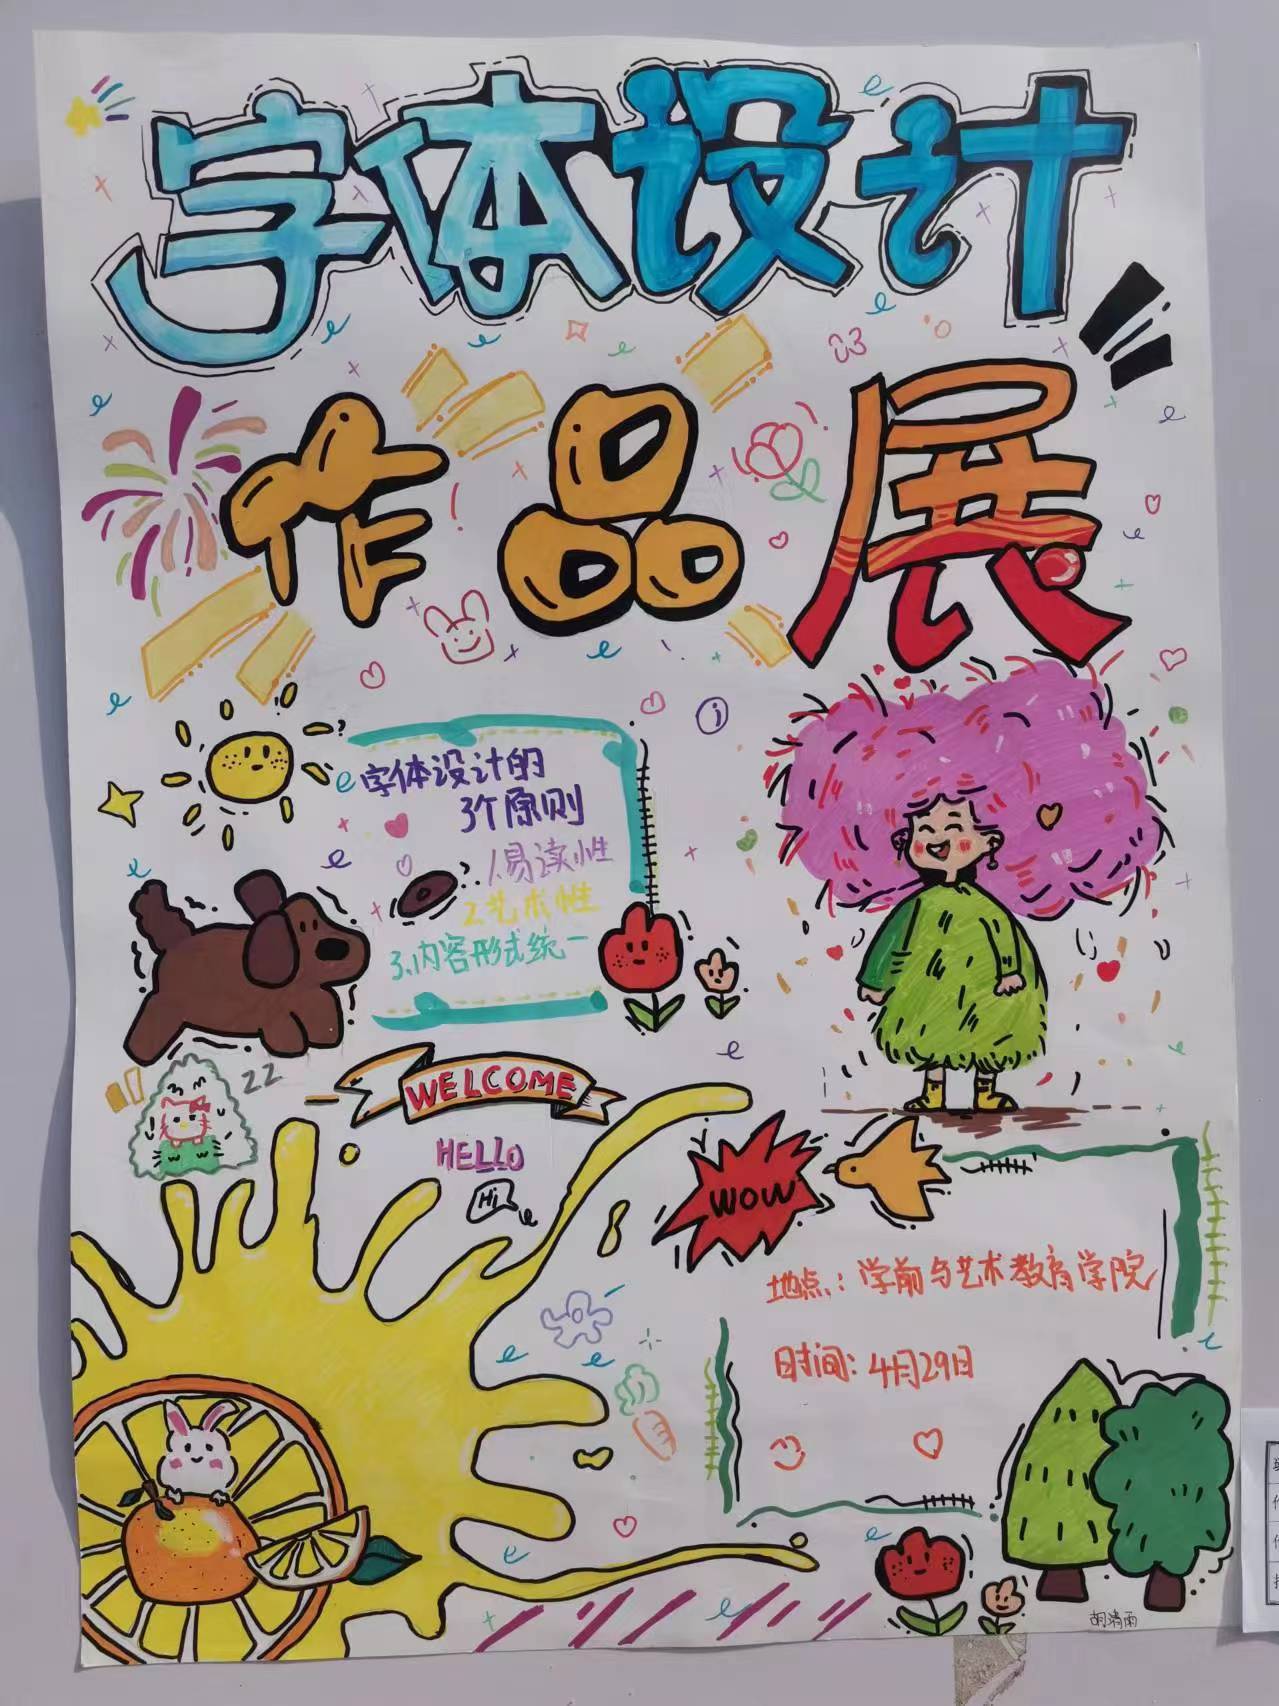 字体设计
作品展
字体设计的
3个原则
1.易读性
2.艺术性
3.内容形式统一
ZZ
WELCOME
HELLO
Hi
WOW
地点:学前与艺术教育学院
时间:4月29日